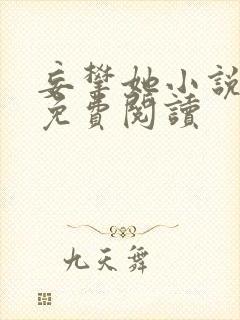 妄攀她小說
免費閱讀
九天舞